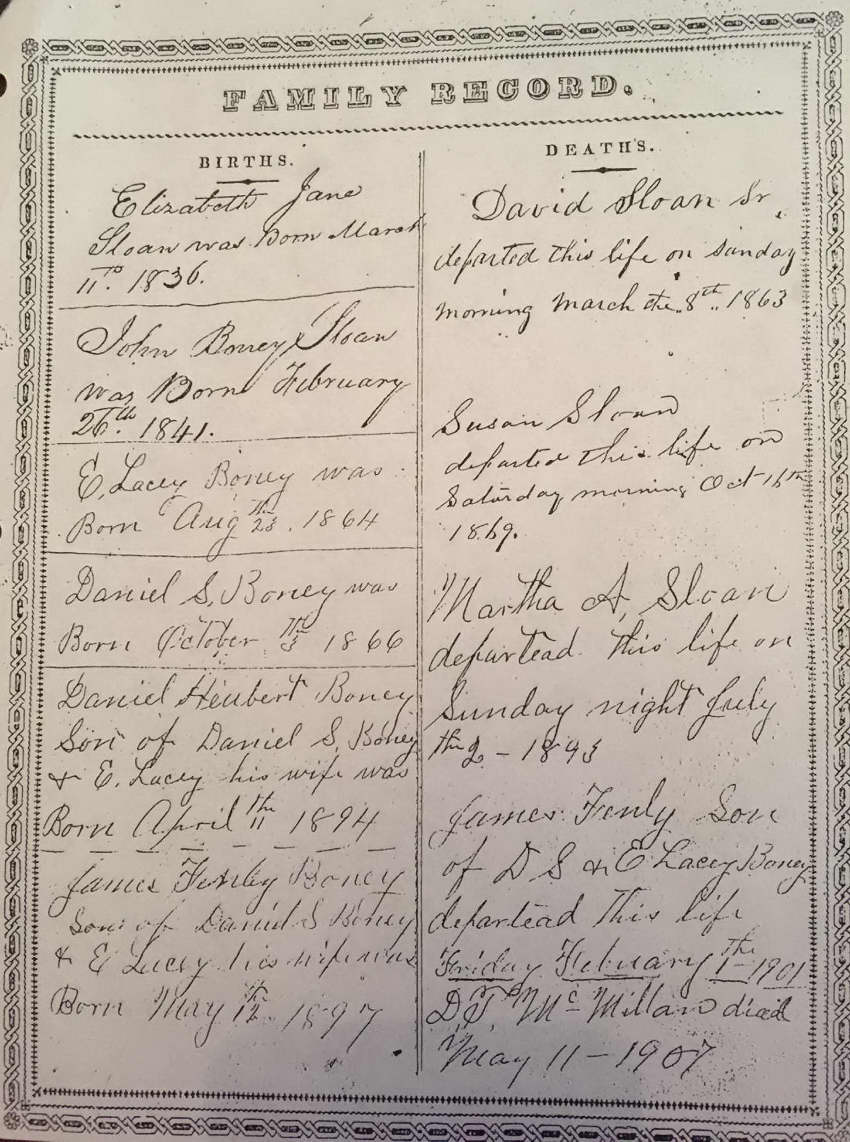 FAMILY RECORD.
BIRTHS.
Elizabeth Jane
Sloan was Born March
11th. 1836.
John Boney Sloan
was Born February
26th. 1841.
E. Lacey Boney was
Born Aug 23th. 1864
Daniel S. Boney was
Born October 3th 1866
Daniel Heubert Boney
Son of Daniel S. Boney
& E. Lacey his wife was
Born April 11th 1894
James Fenley Boney
Son of Daniel S Boney
& E Lacey his wife was
Born May 12th. 1897
DEATH'S.
David Sloan Sr.
departed this life on Sunday
morning March the. 8th. 1863
Susan Sloan
departed this life on
Saturday morning Oct 16th
1869.
Martha A. Sloan
departead this life on
Sunday night July
th 2 - 1893
James Fenly Son
of D S & E Lacey Boney
departead this life
Friday February 1th - 1901
McMillan died
May 11 - 1907